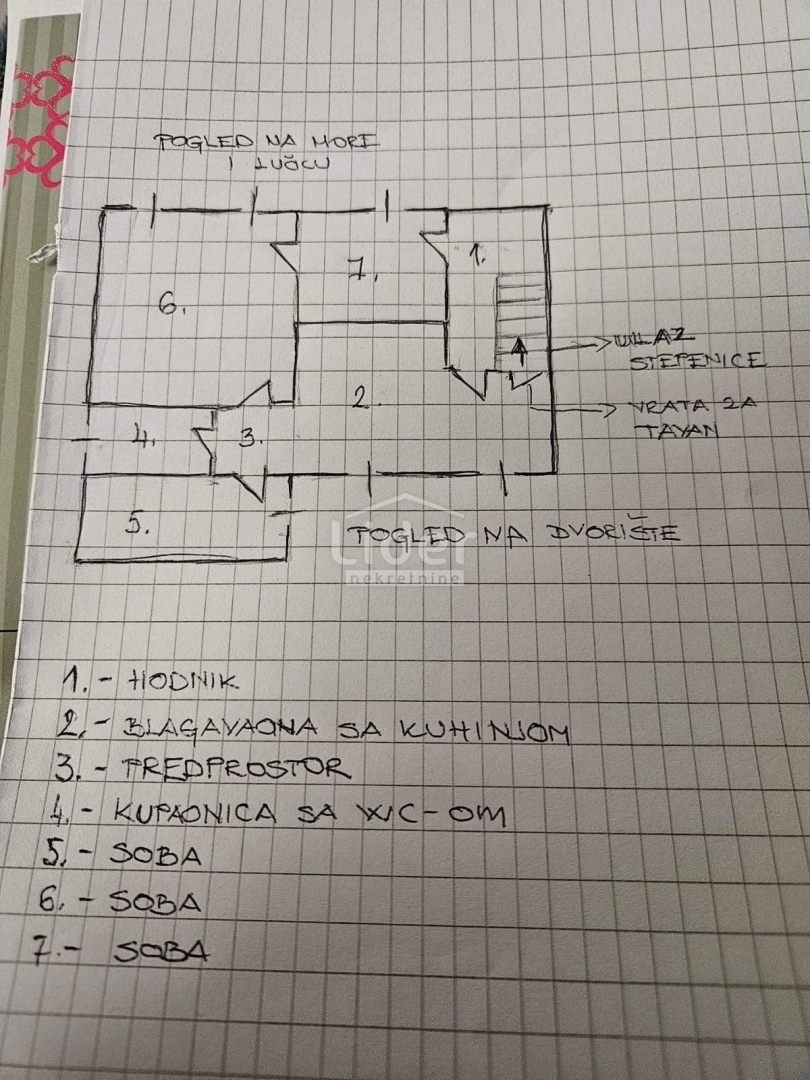 POGLED NA MORE
I LUČCU
6.
7.
1.
2.
3.
4.
5.
ULAZ
STEPENICE
VRATA ZA
TAVAN
POGLED NA DVORIŠTE
Lider
nekretnine
1. - HODNIK
2. - BLAGAVAONA SA KUHINJOM
3. - PREDPROSTOR
4. - KUPAONICA SA WC-OM
5. - SOBA
6. - SOBA
7. - SOBA